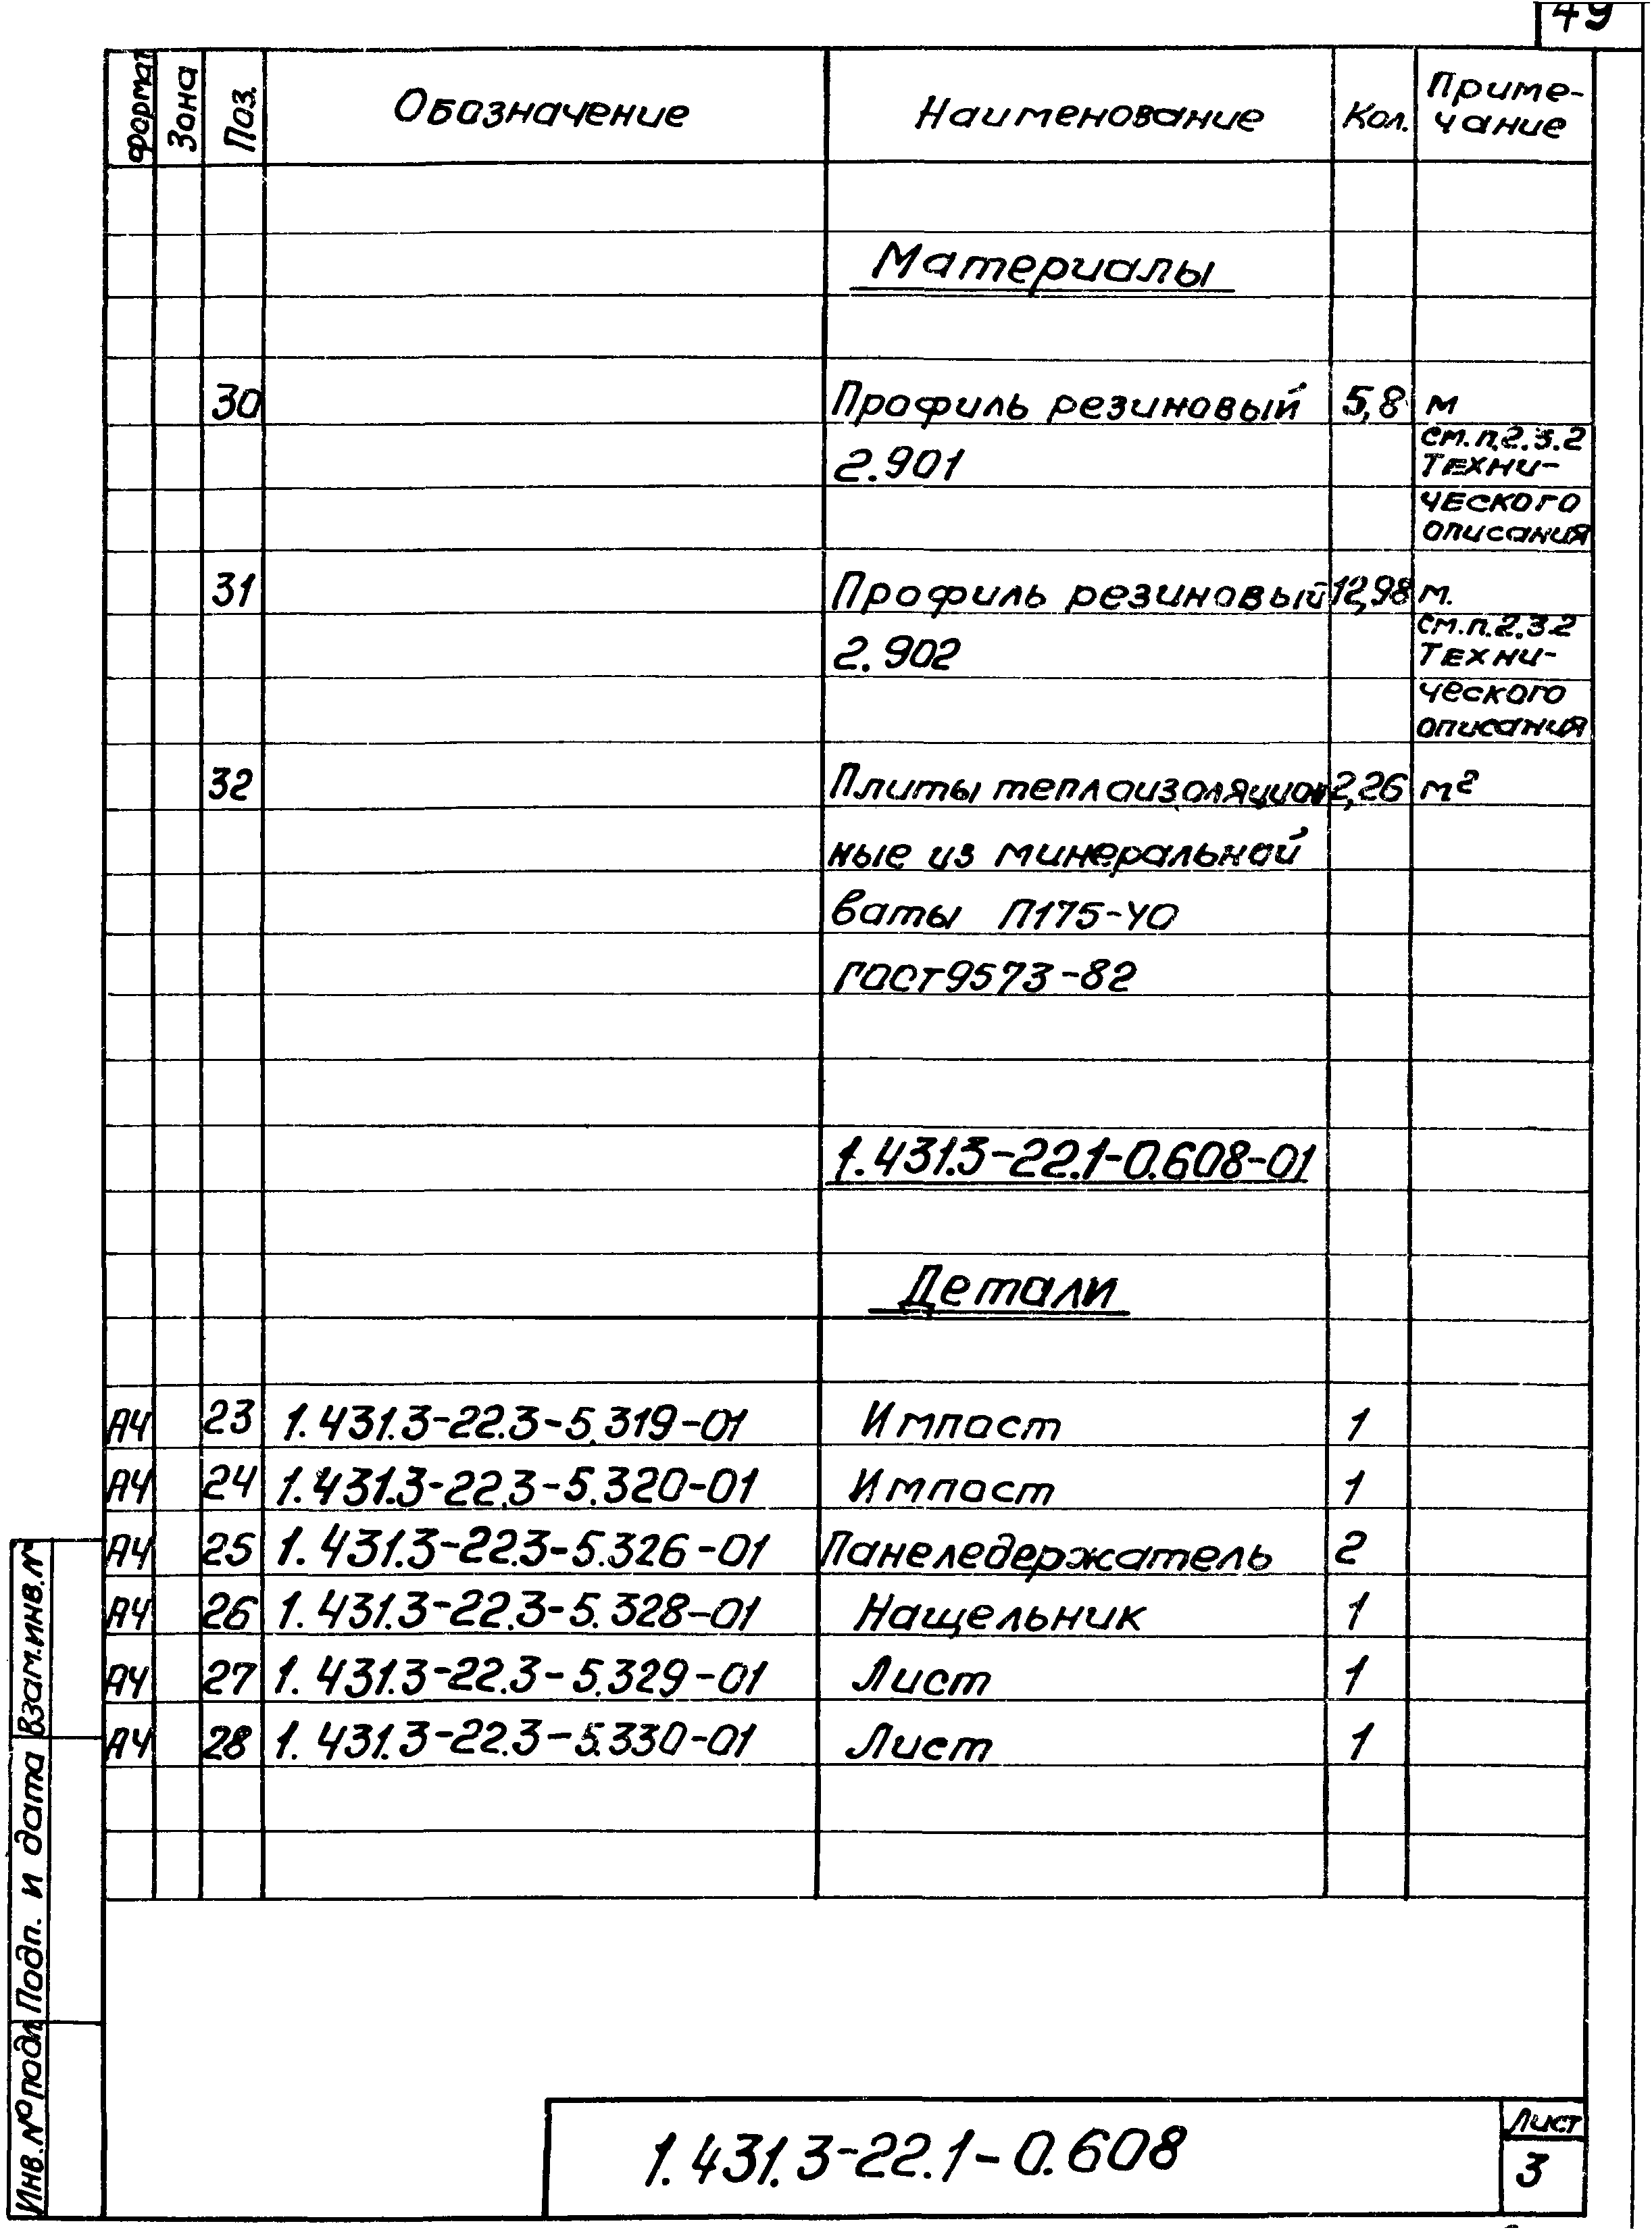 49
Формат Зона Поз. Обозначение Наименование Кол. Приме-
чание
Материалы
30 Профиль резиновый 5,8 м
2.901 см.п.2.3.2
техни-
ческого
описания
31 Профиль резиновый 12,98 м.
2.902 см.п.2.3.2
техни-
ческого
описания
32 Плиты теплоизоляцион 2,26 м²
ные из минеральной
ваты П175-ЧО
гост 9573-82
1.431.3-22.1-0.608-01
Детали
А4 23 1.431.3-22.3-5.319-01 Импост 1
А4 24 1.431.3-22.3-5.320-01 Импост 1
А4 25 1.431.3-22.3-5.326-01 Панеледержатель 2
А4 26 1.431.3-22.3-5.328-01 Нащельник 1
А4 27 1.431.3-22.3-5.329-01 Лист 1
А4 28 1.431.3-22.3-5.330-01 Лист 1
Инв.№подл Подп. и дата Взам.инв.№
1.431.3-22.1-0.608
Лист
3